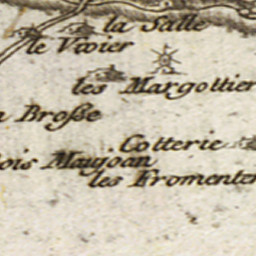 la Salle
le Vivier
les Margottier
a Broſse
Cotterie
ois Maujoan
les Fromenter